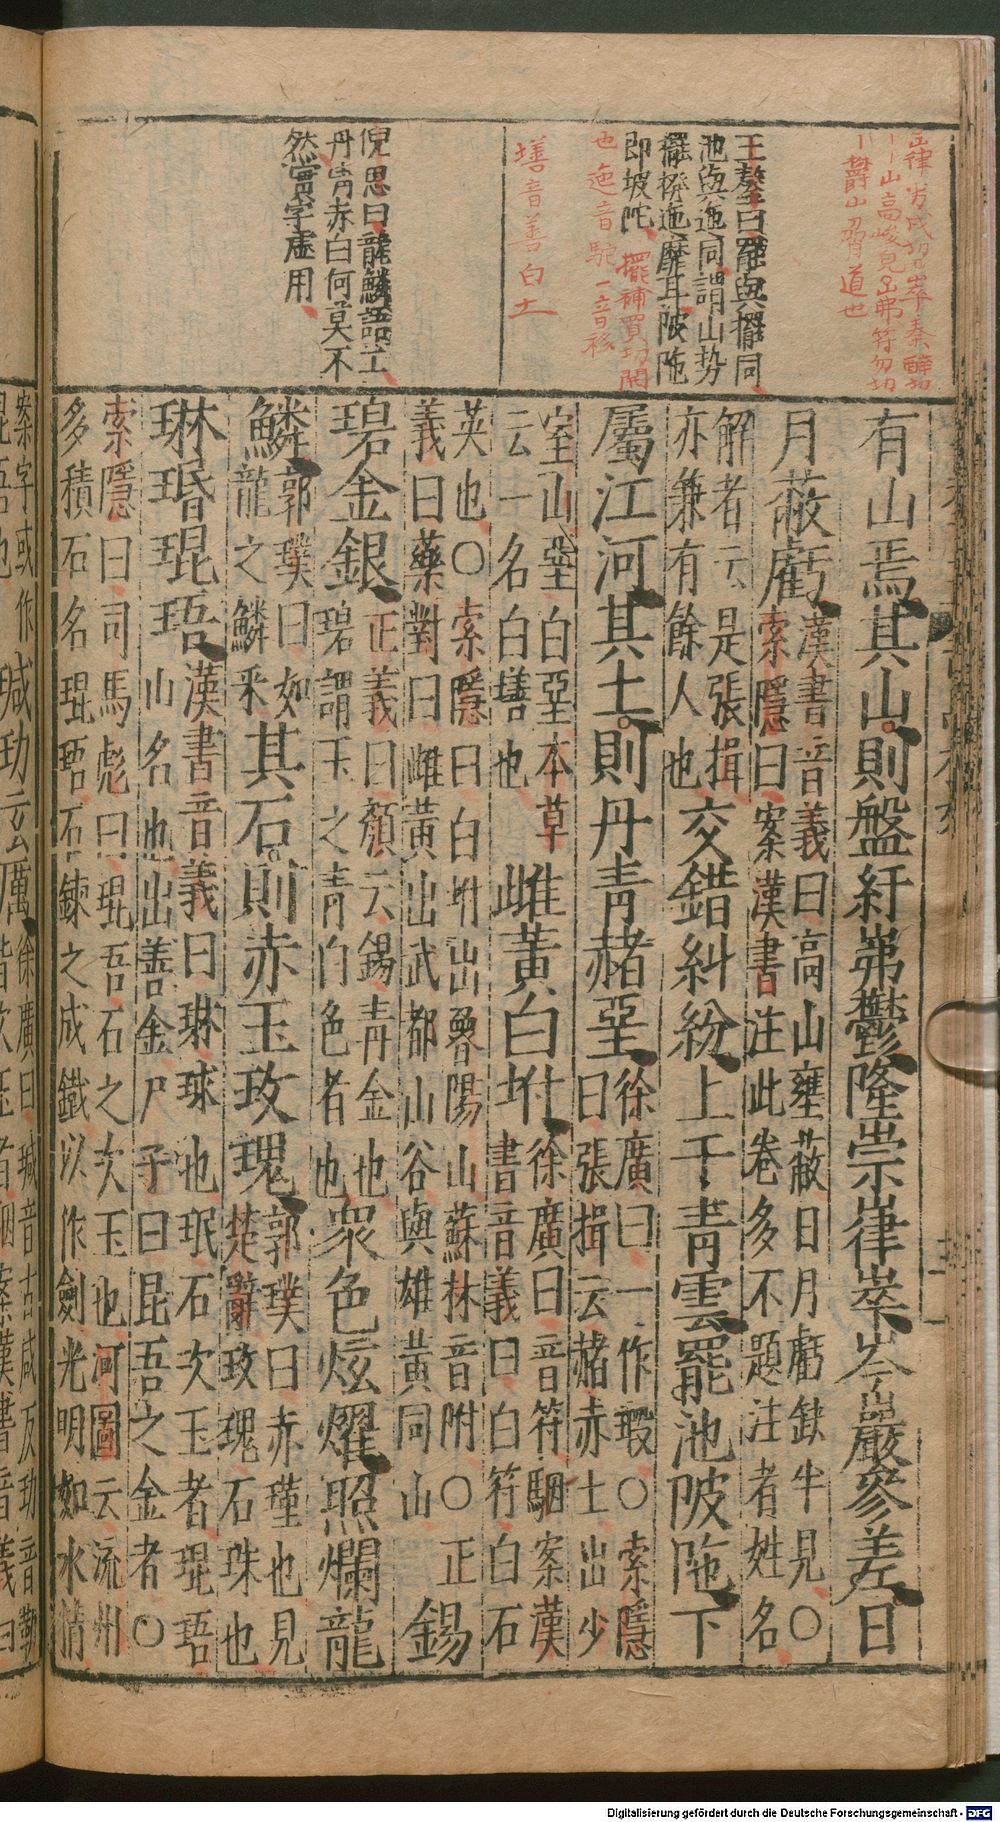 王鏊曰罷與擺同
池與迤同謂山勢
擺撥迤靡耳陂陁
即坡陀
擺補買切開
也迤音駝一音移
墡音善白土
倪思曰龍鱗語工
丹青赤白何莫不
然實字虛用
有山焉其山則盤紆岪鬱隆崇嵂崒岑巖參差日
月蔽虧
漢書音義曰高山壅蔽日月虧缺半見○
索隱曰案漢書注此卷多不題注者姓名
解者云是張揖
亦兼有餘人也
交錯糾紛上干青雲罷池陂陁下
屬江河其土則丹青赭堊
徐廣曰一作瑕○索隱
曰張揖云赭赤土出少
室山堊白堊本草
云一名白墡也
雌黃白坿
徐廣曰音符駰案漢
書音義曰白符白石
英也○索隱曰白坿出魯陽山蘇林音附○正
義曰藥對曰雌黃出武都山谷與雄黃同山
錫
碧金銀
正義曰顏云錫青金也
碧謂玉之青白色者也
衆色炫燿照爛龍
鱗
郭璞曰如
龍之鱗釆
其石則赤玉玫瑰
郭璞曰赤瑾也見
楚辭玫瑰石珠也
琳瑉琨珸
漢書音義曰琳球也珉石次玉者琨珸
山名也出善金尸子曰昆吾之金者○
索隱曰司馬彪曰琨吾石之次玉也河圖云流州
多積石名琨珸石鍊之成鐵以作劍光明如水精
案字或作
琨吾也
瑊玏玄厲
徐廣曰瑊音古咸反玏音勒
Digitalisierung gefördert durch die Deutsche Forschungsgemeinschaft - DFG